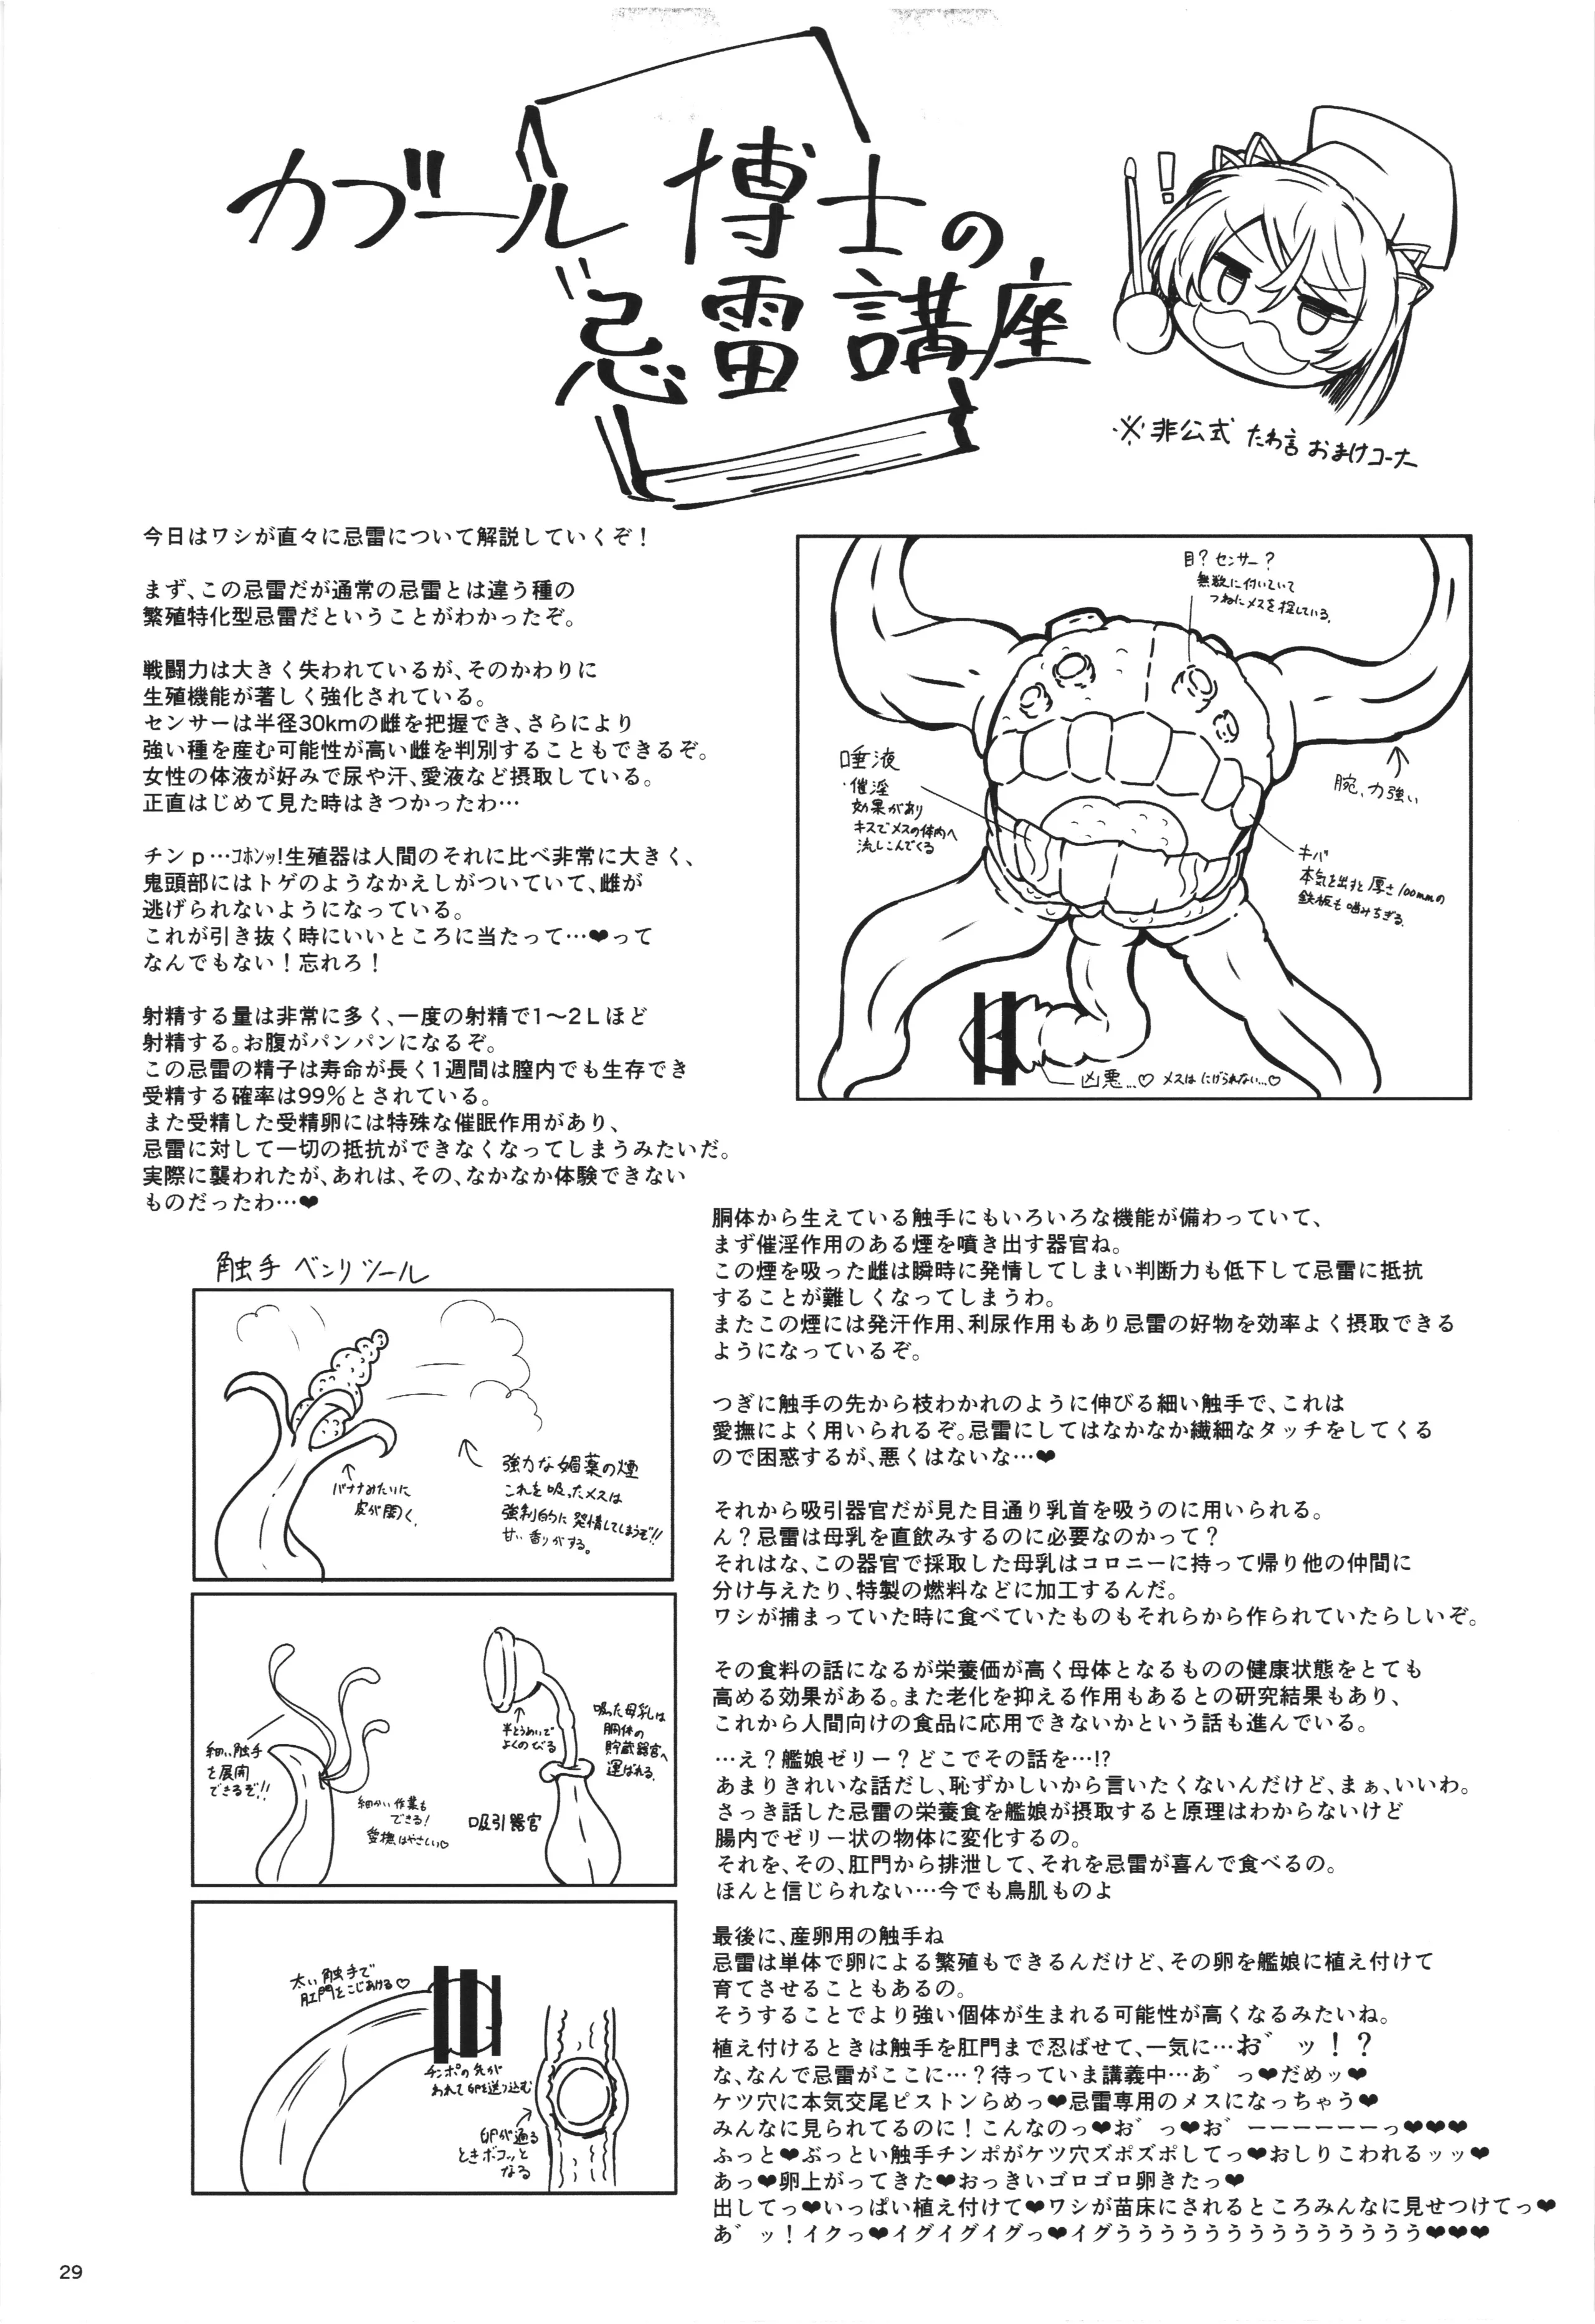 カブール博士の
忌雷講座
※非公式 たわ言 おまけコーナー
今日はワシが直々に忌雷について解説していくぞ！
まず、この忌雷だが通常の忌雷とは違う種の
繁殖特化型忌雷だということがわかったぞ。
戦闘力は大きく失われているが、そのかわりに
生殖機能が著しく強化されている。
センサーは半径30kmの雌を把握でき、さらにより
強い種を産む可能性が高い雌を判別することもできるぞ。
女性の体液が好みで尿や汗、愛液など摂取している。
正直はじめて見た時はきつかったわ…
チンｐ…ｺﾎﾝｯ!生殖器は人間のそれに比べ非常に大きく、
鬼頭部にはトゲのようなかえしがついていて、雌が
逃げられないようになっている。
これが引き抜く時にいいところに当たって…❤って
なんでもない！忘れろ！
射精する量は非常に多く、一度の射精で1〜2Lほど
射精する。お腹がパンパンになるぞ。
この忌雷の精子は寿命が長く1週間は膣内でも生存でき
受精する確率は99％とされている。
また受精した受精卵には特殊な催眠作用があり、
忌雷に対して一切の抵抗ができなくなってしまうみたいだ。
実際に襲われたが、あれは、その、なかなか体験できない
ものだったわ…❤
目？センサー？
無数に付いていて
つねにメスを探している。
唾液
・催淫
効果があり
キスでメスの体内へ
流しこんでくる
腕、力強い
キバ
本気を出すと厚さ100mmの
鉄板も噛みちぎる。
凶悪…♡ メスはにげられない…♡
触手 ベンリツール
バナナみたいに
皮が開く。
強力な媚薬の煙
これを吸ったメスは
強制的に発情してしまうぞ!!
甘い香りがする。
細い触手
を展開
できるぞ!!
細かい作業も
できる！
愛撫はやさしい♡
半とうめいで
よくのびる
吸った母乳は
胴体の
貯蔵器官へ
運ばれる。
吸引器官
太い触手で
肛門をこじあける♡
チンポの先が
われて卵を送り込む
卵が通る
ときボコッと
なる
胴体から生えている触手にもいろいろな機能が備わっていて、
まず催淫作用のある煙を噴き出す器官ね。
この煙を吸った雌は瞬時に発情してしまい判断力も低下して忌雷に抵抗
することが難しくなってしまうわ。
またこの煙には発汗作用、利尿作用もあり忌雷の好物を効率よく摂取できる
ようになっているぞ。
つぎに触手の先から枝わかれのように伸びる細い触手で、これは
愛撫によく用いられるぞ。忌雷にしてはなかなか繊細なタッチをしてくる
ので困惑するが、悪くはないな…❤
それから吸引器官だが見た目通り乳首を吸うのに用いられる。
ん？忌雷は母乳を直飲みするのに必要なのかって？
それはな、この器官で採取した母乳はコロニーに持って帰り他の仲間に
分け与えたり、特製の燃料などに加工するんだ。
ワシが捕まっていた時に食べていたものもそれらから作られていたらしいぞ。
その食料の話になるが栄養価が高く母体となるものの健康状態をとても
高める効果がある。また老化を抑える作用もあるとの研究結果もあり、
これから人間向けの食品に応用できないかという話も進んでいる。
…え？艦娘ゼリー？どこでその話を…!?
あまりきれいな話だし、恥ずかしいから言いたくないんだけど、まぁ、いいわ。
さっき話した忌雷の栄養食を艦娘が摂取すると原理はわからないけど
腸内でゼリー状の物体に変化するの。
それを、その、肛門から排泄して、それを忌雷が喜んで食べるの。
ほんと信じられない…今でも鳥肌ものよ
最後に、産卵用の触手ね
忌雷は単体で卵による繁殖もできるんだけど、その卵を艦娘に植え付けて
育てさせることもあるの。
そうすることでより強い個体が生まれる可能性が高くなるみたいね。
植え付けるときは触手を肛門まで忍ばせて、一気に…お゛ッ！？
な、なんで忌雷がここに…？待っていま講義中…あ゛っ❤だめッ❤
ケツ穴に本気交尾ピストンらめっ❤忌雷専用のメスになっちゃう❤
みんなに見られてるのに！こんなのっ❤お゛っ❤お゛ーーーーーーっ❤❤❤
ふっと❤ぶっとい触手チンポがケツ穴ズポズポしてっ❤おしりこわれるッッ❤
あっ❤卵上がってきた❤おっきいゴロゴロ卵きたっ❤
出してっ❤いっぱい植え付けて❤ワシが苗床にされるところみんなに見せつけてっ❤
あ゛ッ！イクっ❤イグイグイグっ❤イグうううううううううううううう❤❤❤
29